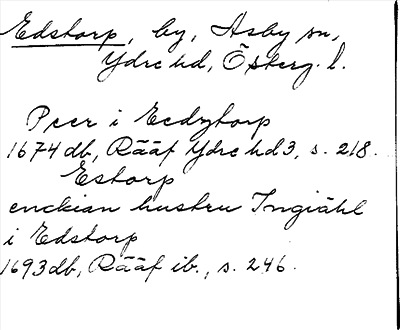 Edstorp, by, Asby sn,
Ydre hd, Österg. l.
Peer i Eedztorp
1674 db, Rääf Ydre hd 3, s. 218.
Estorp
enckian hustru Ingiähl
i Edstorp
1693 db, Rääf ib., s. 246.